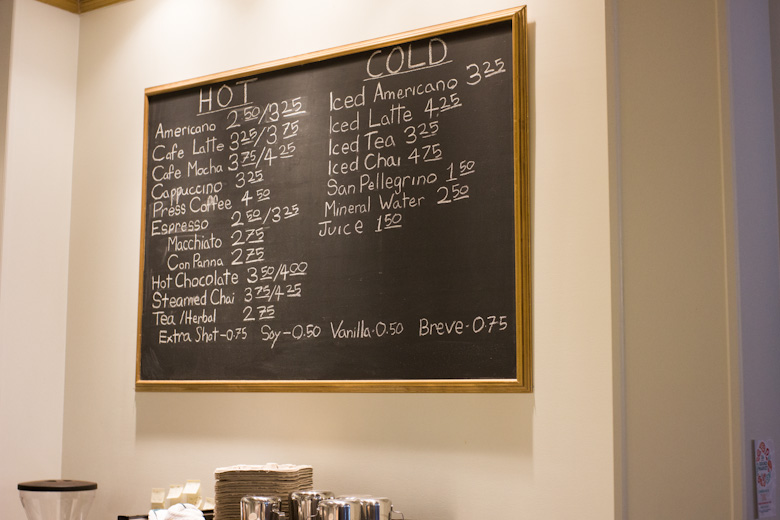 HOT
Americano 2.50/3.25
Cafe Latte 3.25/3.75
Cafe Mocha 3.75/4.25
Cappuccino 3.25
Press Coffee 4.50
Espresso 2.50/3.25
Macchiato 2.75
Con Panna 2.75
Hot Chocolate 3.50/4.00
Steamed Chai 3.75/4.25
Tea/Herbal 2.75
COLD
Iced Americano 3.25
Iced Latte 4.25
Iced Tea 3.25
Iced Chai 4.75
San Pellegrino 1.50
Mineral Water 2.50
Juice 1.50
Extra Shot-0.75 Soy-0.50 Vanilla-0.50 Breve-0.75